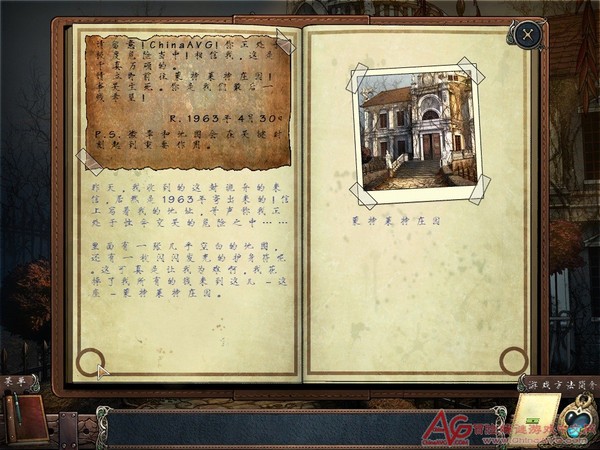 请留意!ChinaAVG!你正处于
极度危险当中!相信我,这是
千真万确的。
请立即前往蒙特莱特庄园!
事关生死。你是我们最后一
线希望!
R.1963年4月30
P.S.徽章和地图会在关键时
刻起到重要作用。
昨天,我收到的这封诡异的来
信,居然是1963年寄出来的!信
上写着我的地址,号声称我正
处于性命交关的危险之中……
里面有一张几乎空白的地图,
还有一枚闪闪发亮的护身符呢
。这可真是让我为难啊,我花
掉了我所有的钱来到这儿-这
座-蒙特莱特庄园。
蒙特莱特庄园
菜单
游戏方法简介
AG